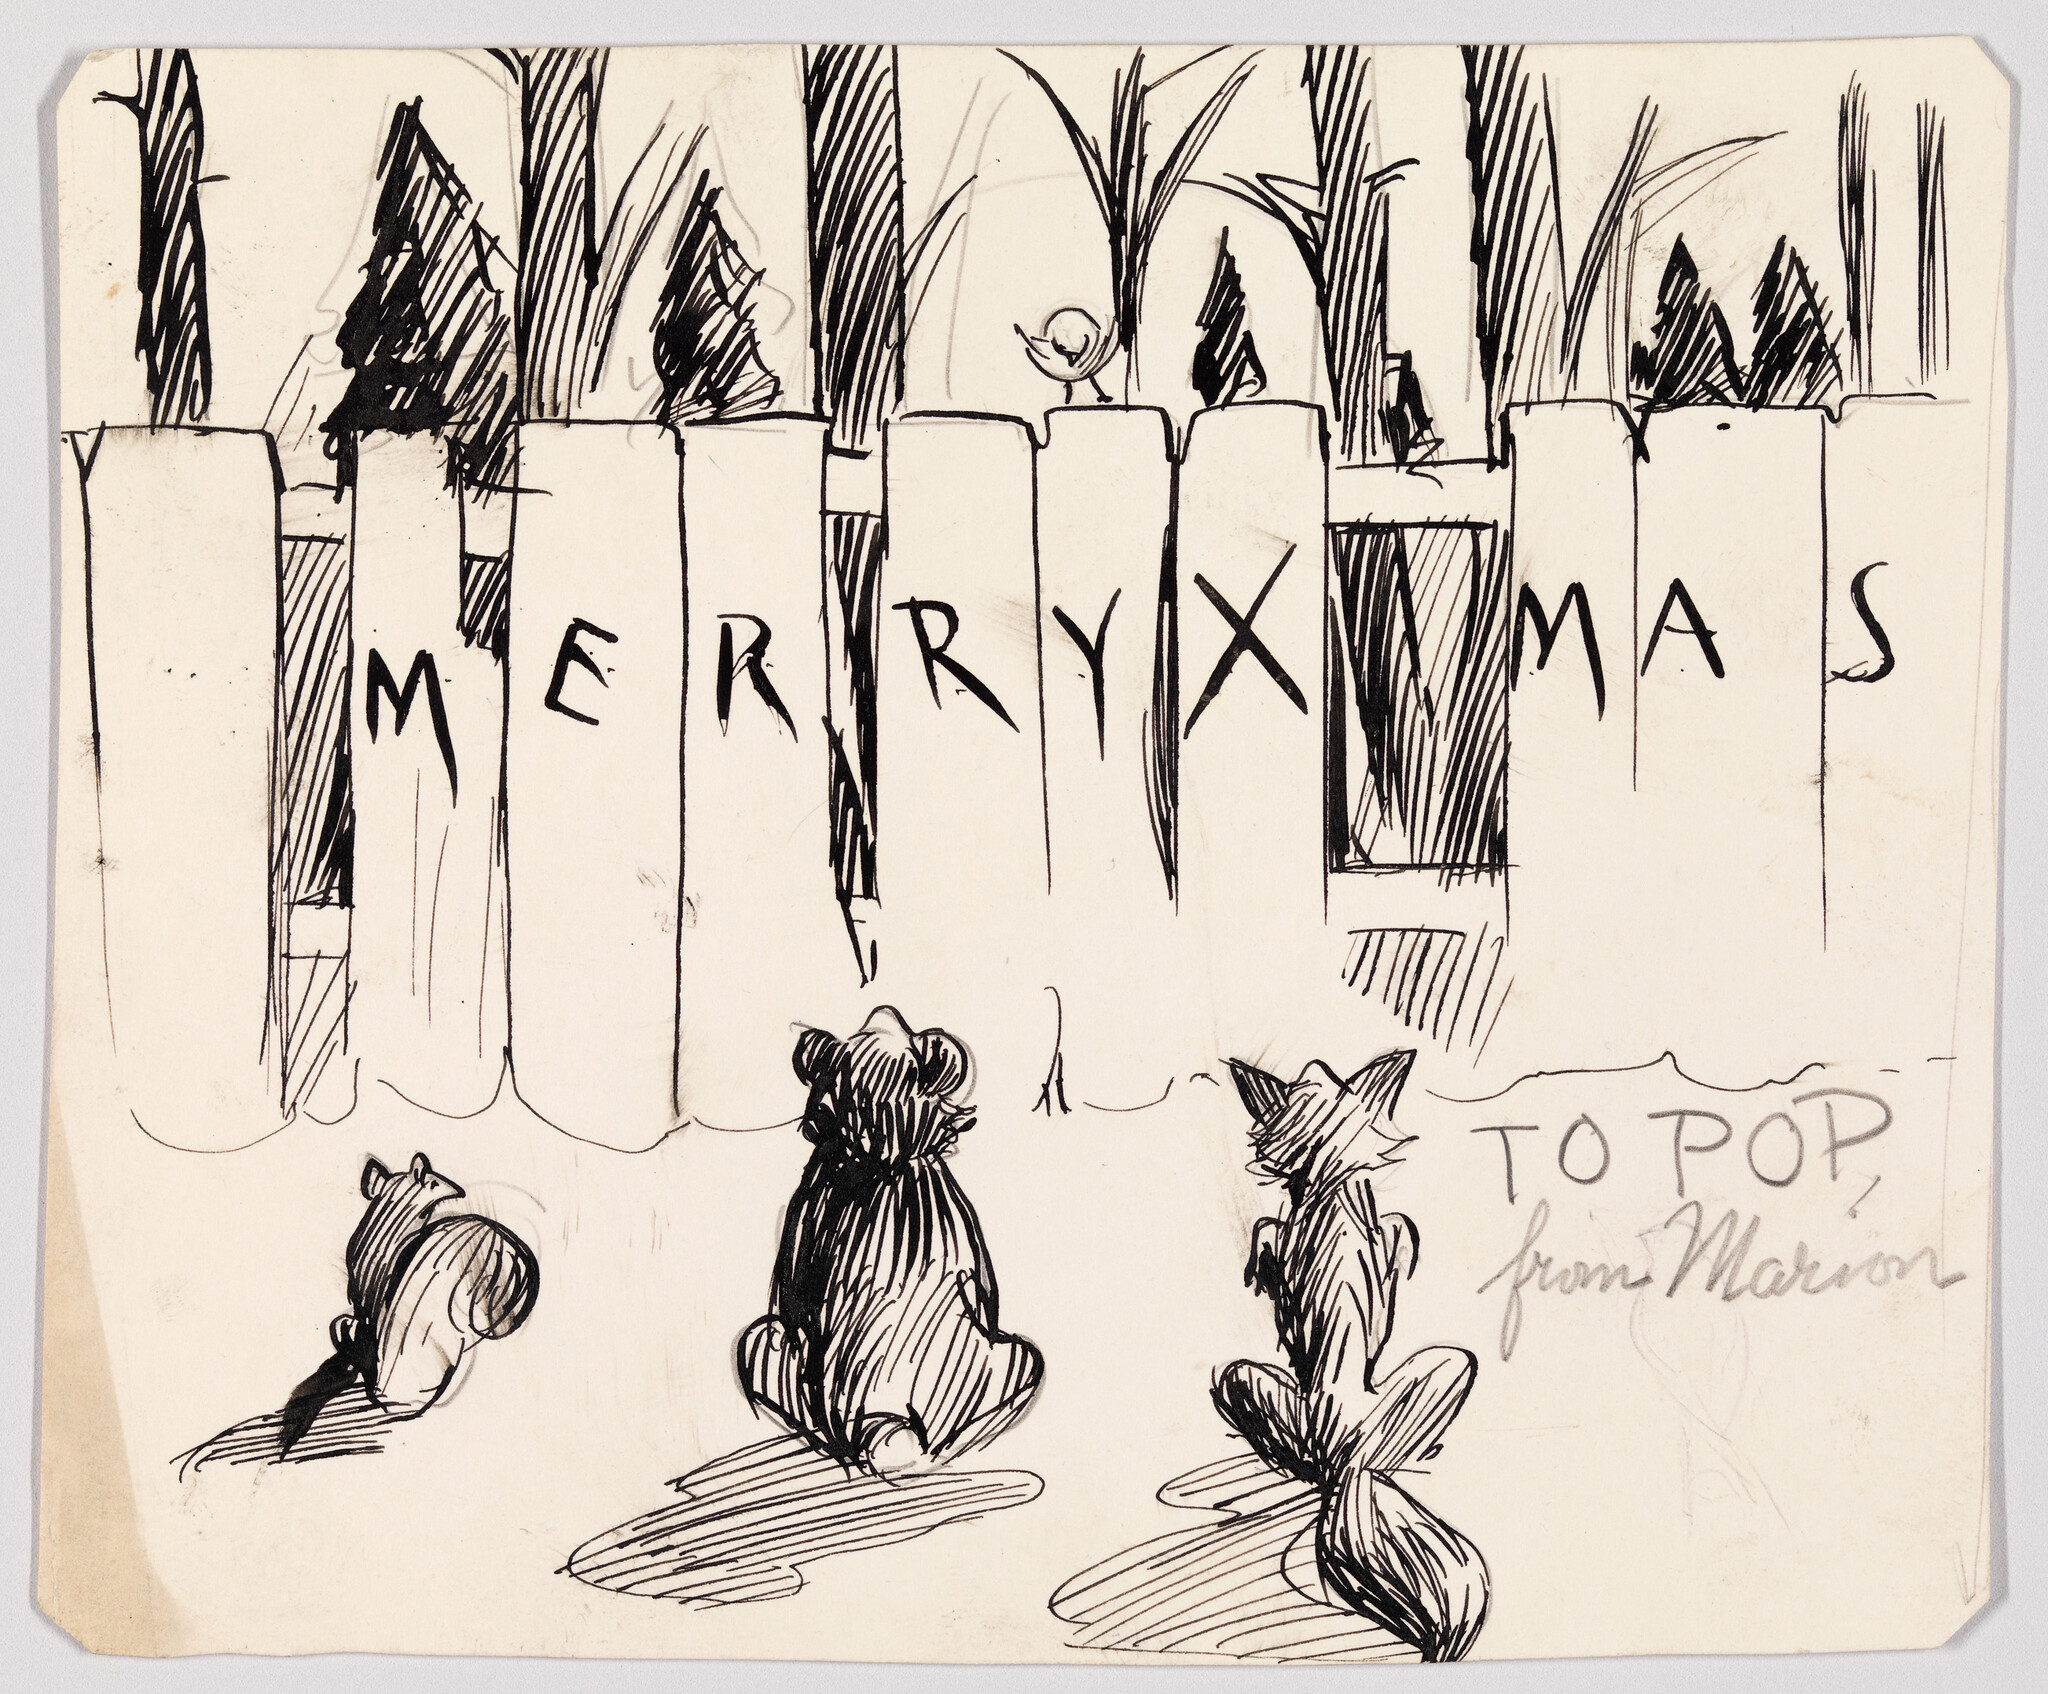 MERRY XMAS
TO POP,
from Marion